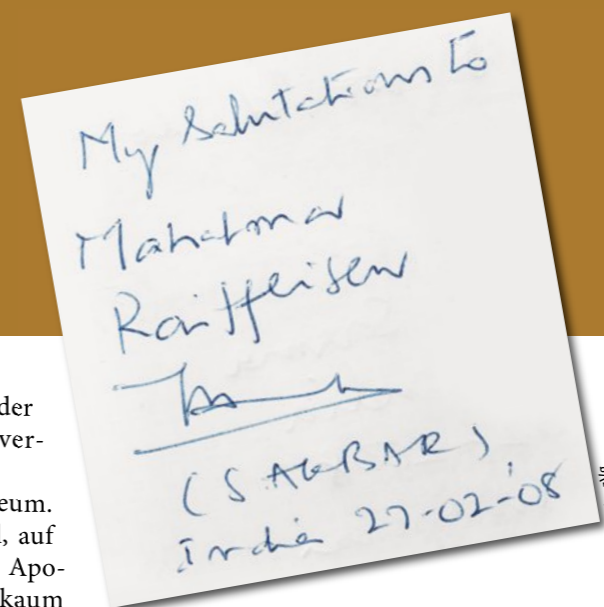 My Salutations to
Mahatma
Raiffeisen
(S AKBAR)
India 27-02-'08
der
ver-
eum.
, auf
Apo-
kaum